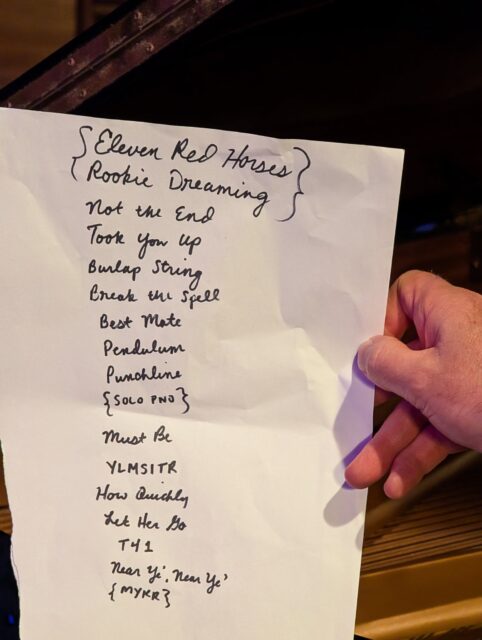 {Eleven Red Horses}
{Rookie Dreaming}
Not the End
Took You Up
Burlap String
Break the Spell
Best Mate
Pendulum
Punchline
{SOLO PNO}
Must Be
YLMSITR
How Quickly
Let Her Go
T41
Near Ye', Near Ye'
{MYKR}